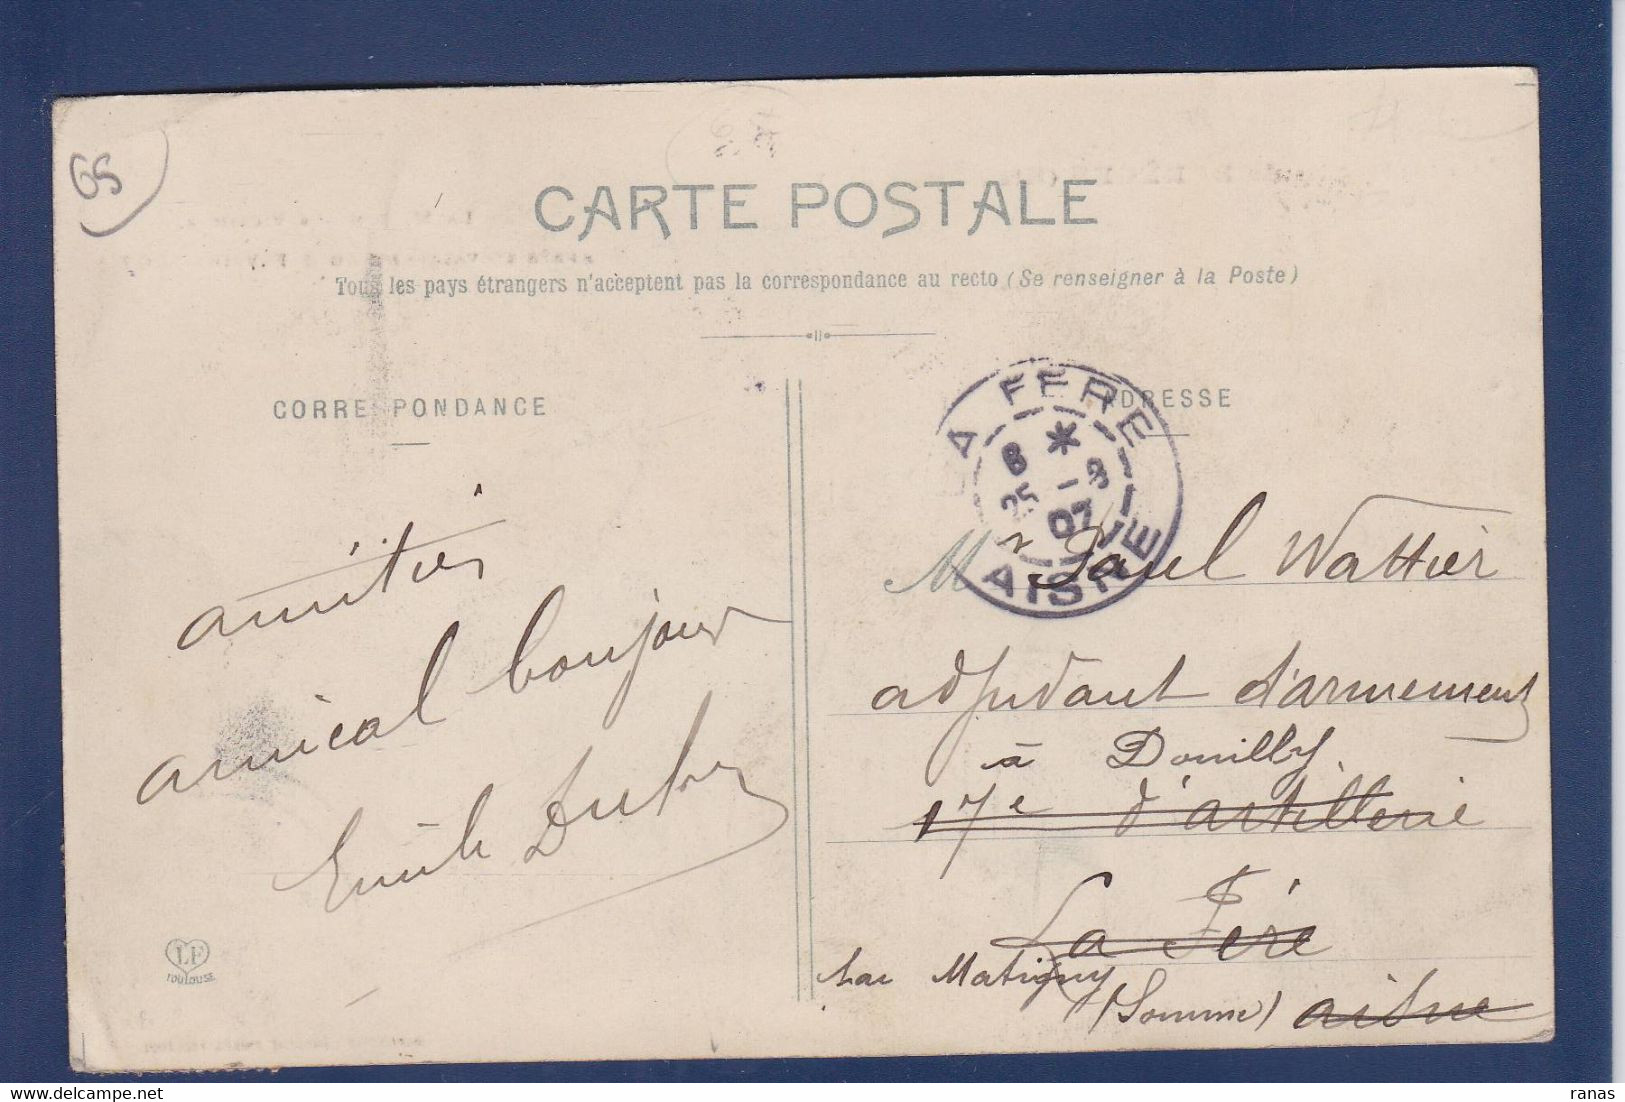 65
CARTE POSTALE
Tous les pays étrangers n'acceptent pas la correspondance au recto (Se renseigner à la Poste)
CORRESPONDANCE
ADRESSE
A FERE
8 *
25 - 8
07
AISNE
amitiés
amical bonjour
Emile
LF
TOULOUSE
Mr Paul Wattier
adjudant d'armement
à Douilly
17e d'artillerie
La Fère
par Matigny
(Somme) aisne
ranas